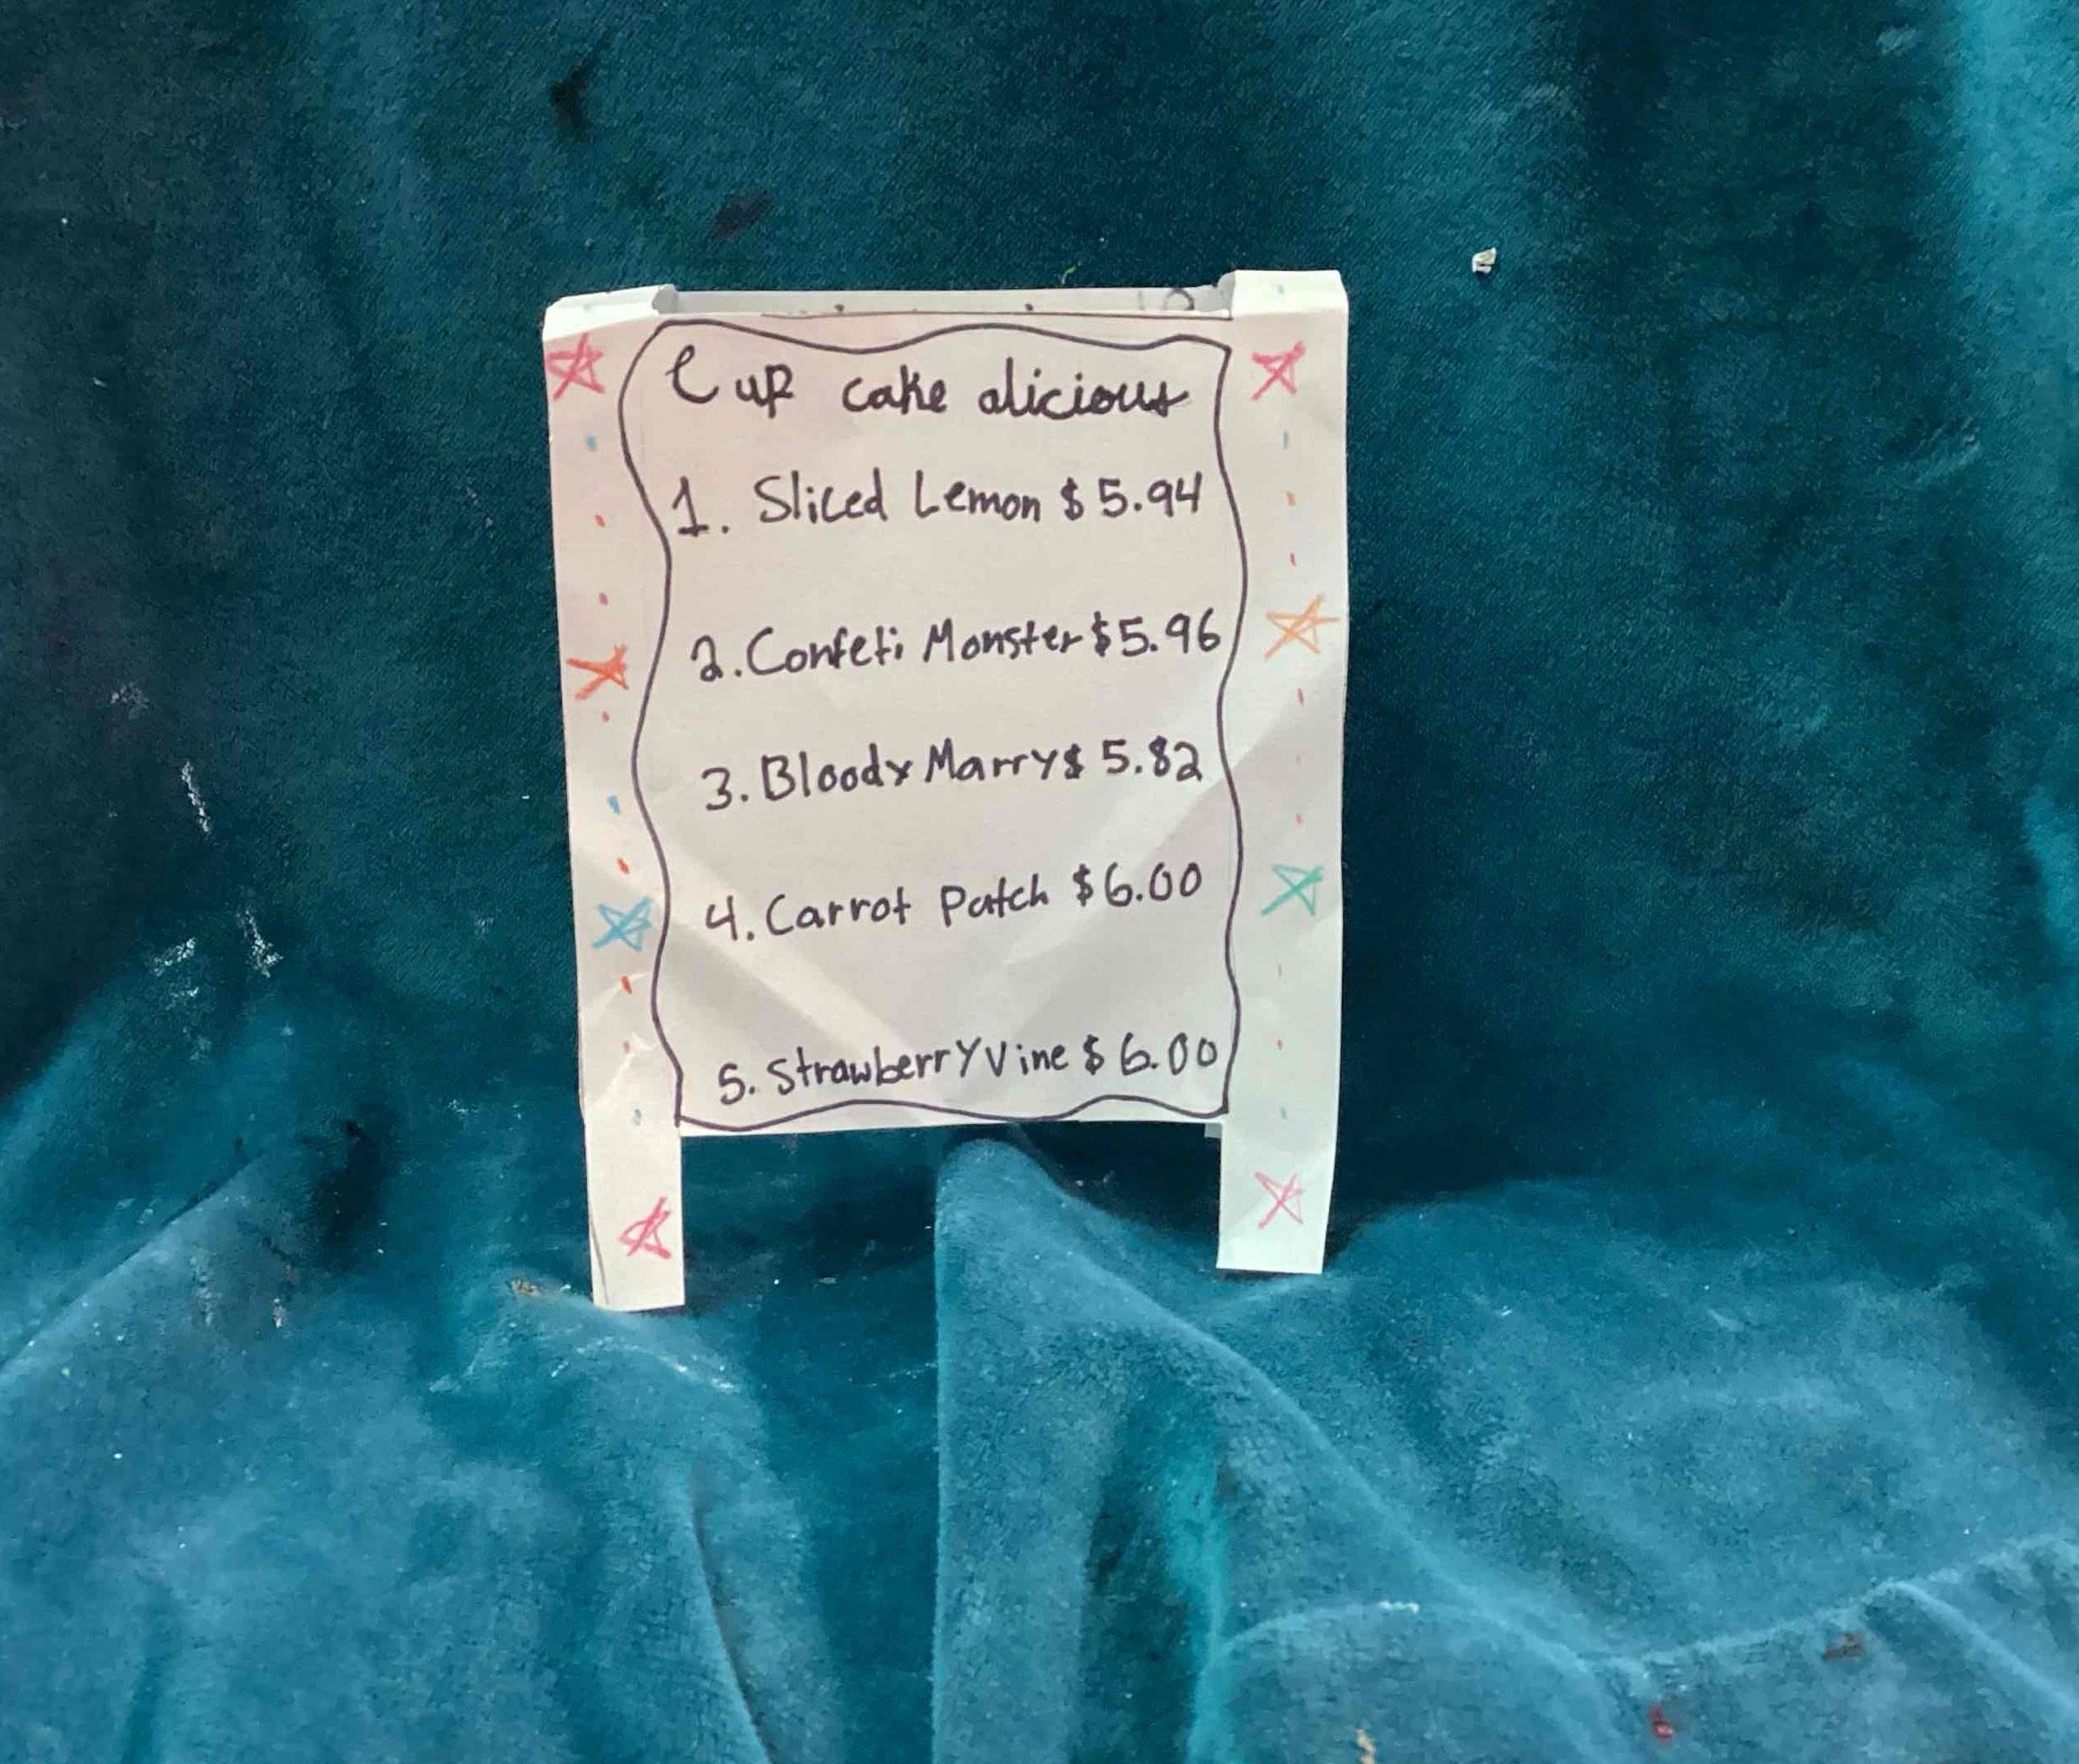 Cup cake alicious
1. Sliced Lemon $5.94
2. Confeti Monster $5.96
3. Bloody Marry $5.82
4. Carrot Patch $6.00
5. Strawberry Vine $6.00